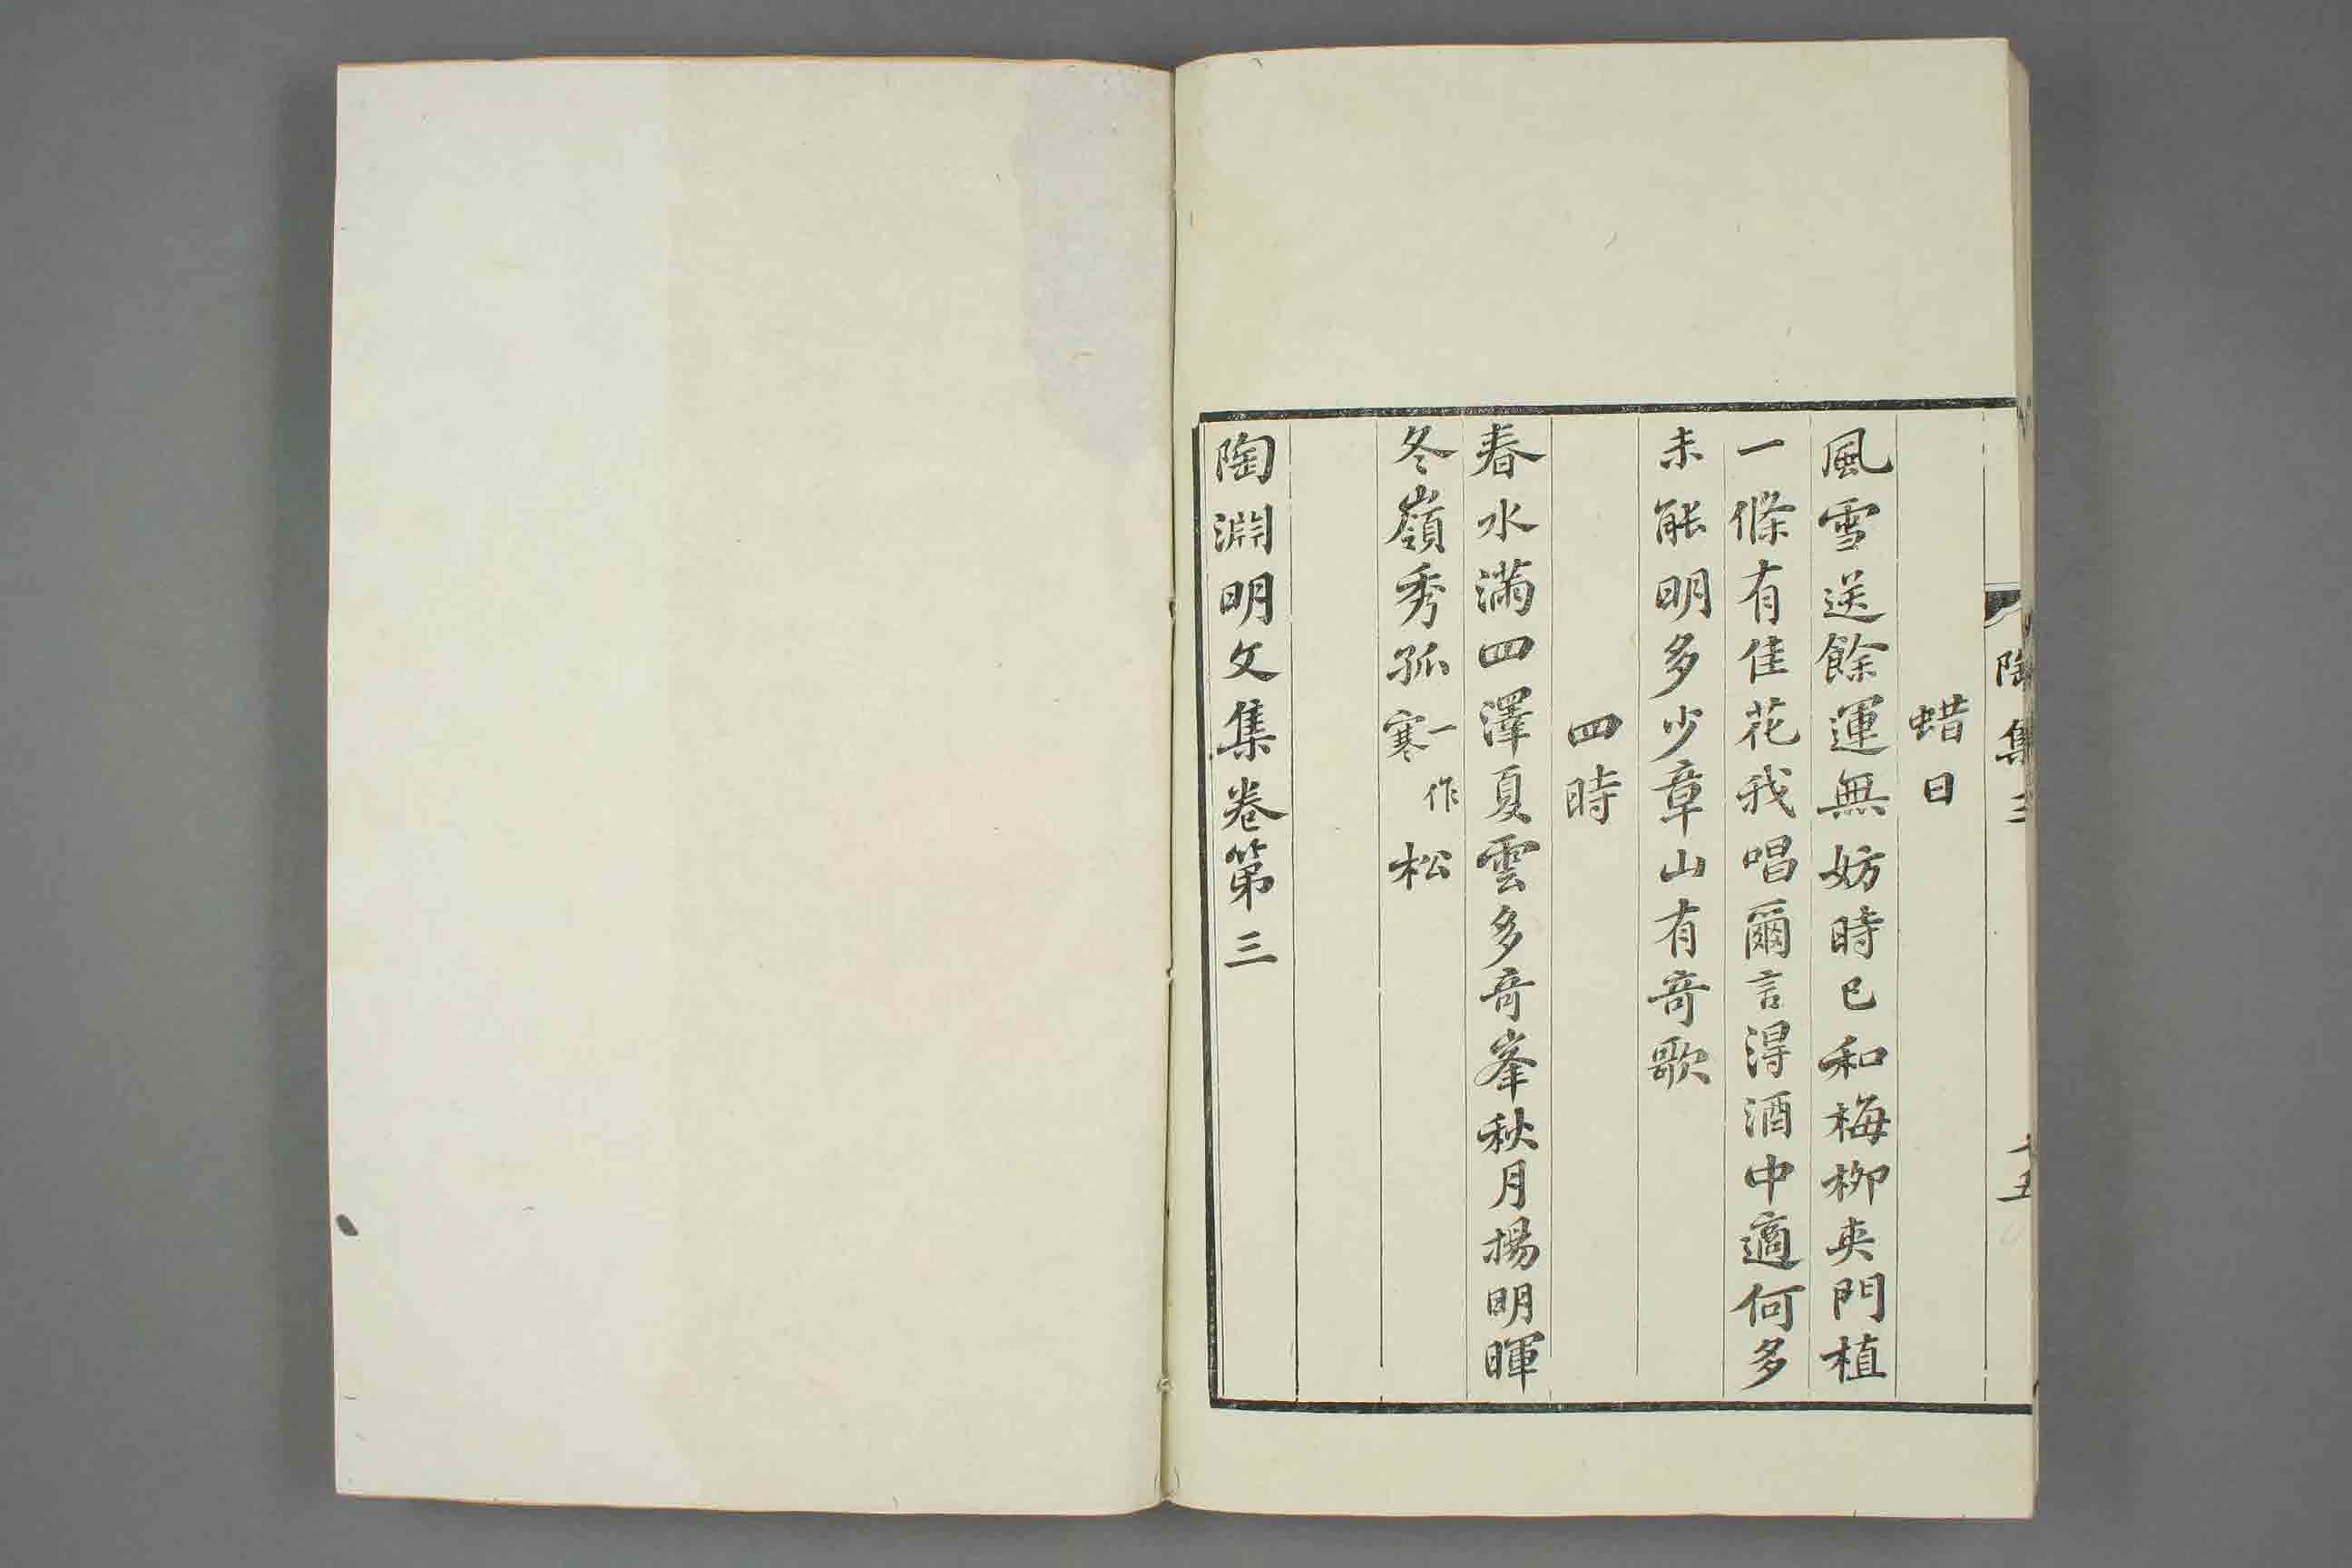 陶集三
十五
蜡日
風雪送餘運無妨時已和梅柳夾門植
一條有佳花我唱爾言得酒中適何多
未能明多少章山有奇歌
四時
春水滿四澤夏雲多奇峯秋月揚明暉
冬嶺秀孤一作寒松
陶淵明文集卷第三